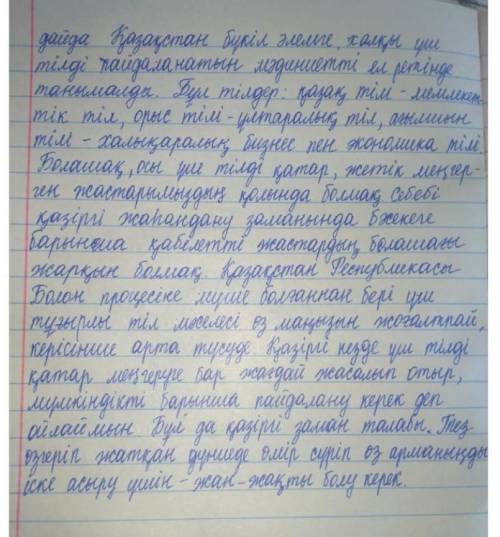 дайда Қазақстан бүкіл әлемге, халқы үш
тілді пайдаланатын мәдиниетті ел ретінде
танымалды. Бұл тілдер: қазақ тілі - мемлекет-
тік тіл, орыс тілі - ұлтаралық тіл, ағылшын
тілі - халықаралық бизнес пен экономика тілі.
Болашақ, осы үш тілді қатар, жетік меңгер-
ген жастарымыздың қолында болмақ. Себебі
қазіргі жаһандану заманында бәсекеге
барынша қабілетті жастардың болашағы
жарқын болмақ. Қазақстан Республикасы
Болон процесіне мүше болғаннан бері үш
тұғырлы тіл мәселесі өз маңызын жоғалтпай,
керісінше арта түсуде. Қазіргі кезде үш тілді
қатар меңгеруге бар жағдай жасалып отыр,
мүмкіндікті барынша пайдалану керек деп
ойлаймын. Бұл да қазіргі заман талабы. Тез
өзгеріп жатқан дүниеде өмір сүріп өз арманыңды
іске асыру үшін - жан-жақты болу керек.